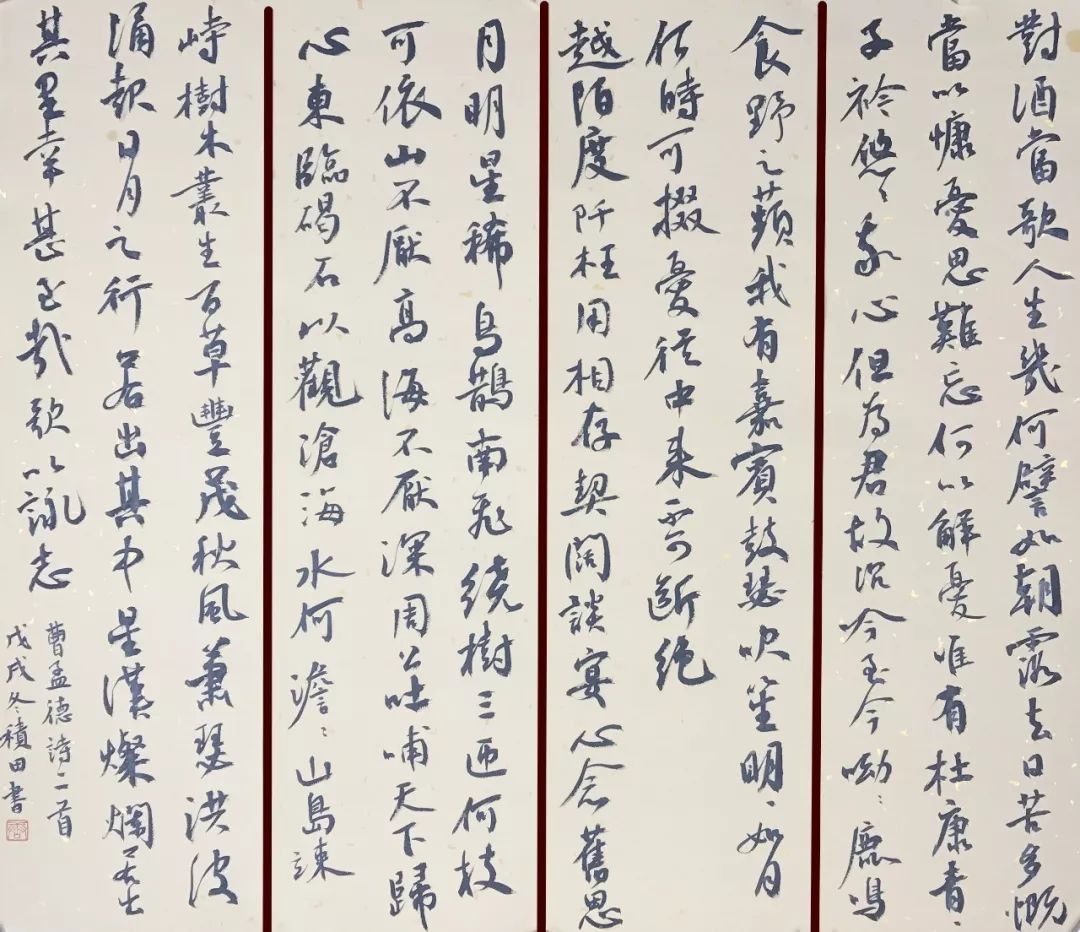 對酒當歌人生幾何譬如朝露去日苦多慨
當以慷憂思難忘何以解憂唯有杜康青〻
子衿悠〻我心但為君故沉吟至今呦〻鹿鳴
食野之蘋我有嘉賓鼓瑟吹笙明〻如月
何時可掇憂從中來不可斷絕
越陌度阡枉用相存契闊談宴心念舊恩
月明星稀烏鵲南飛繞樹三匝何枝
可依山不厭高海不厭深周公吐哺天下歸
心東臨碣石以觀滄海水何澹〻山島竦
峙樹木叢生百草豐茂秋風蕭瑟洪波
涌起日月之行若出其中星漢燦爛若出
其里幸甚至哉歌以詠志
曹孟德詩二首
戊戌冬積田書